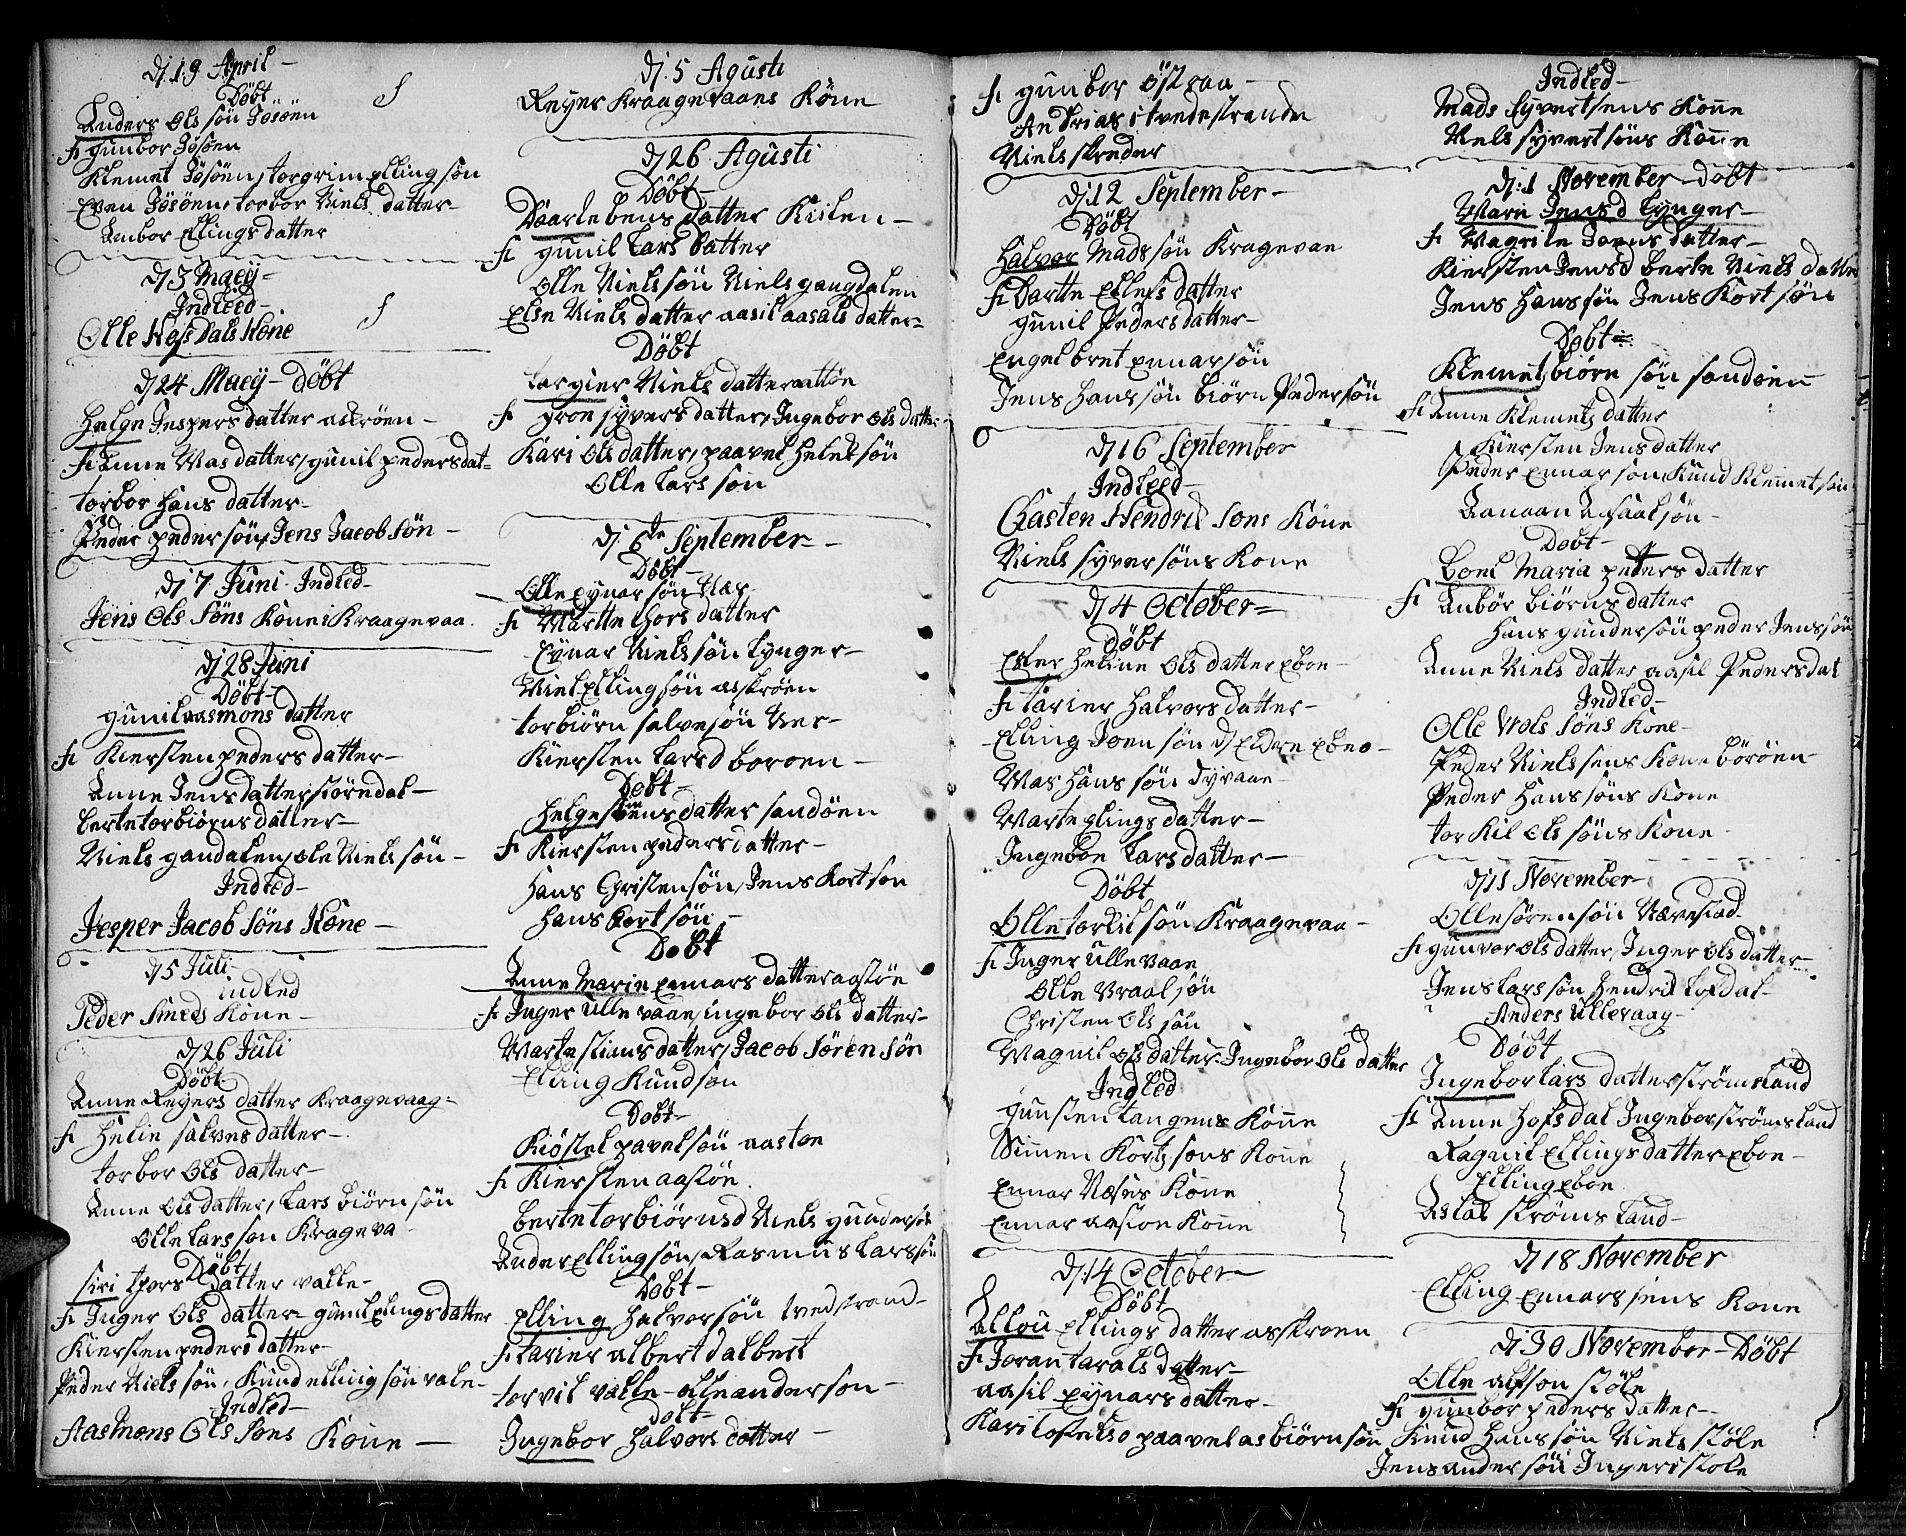 dj 19 April
Döbt
Anders Ols sön Jösöen
f: gunbor Jösöen
Klemet Jösöen, torgrim Elling sön
Even Jösöen, torbor Niels datter
Anbor Ellings datter
dj 3 Maey
Indleed
Olle Hofs Dals Kone
dj 24 Maey Döbt
Helge Jespers datter askröen
f: Anne Mas datter, gunil peders dat
torbor Hans datter
Peder peder sön, Jens Jacob sön
dj 7 Juni Indled
Jens Ols söns Kone i Kraagevaa
dj 28 Juni
Döbt
gunil aasmons datter
f: Kiersten peders datter
Anne Jens datter störedal
berte torbiörns datter
Niels gaudalen, ole Niels sön
Indled
Jesper Jacob söns Kone
dj 5 Juli
indled
Peder Smeds Kone
dj 26 Juli
Döbt
Anne Reyers datter Kraagevaag
f: Helie salves datter
torbor Ols datter
Anne Ols datter, Lars biörn sön
Olle Lars sön Krageva
Döbt
siri tors datter valle
f: Inger Ols datter gunil Elings datter
Kiersten peders datter
Peder Niels sön, Knud elling sön vale
Indled
Aasmons Ols söns Kone
dj 5 Agusti
Reyer Kraagevaans Kone
dj 26 Agusti
Döbt
Daarte bens datter Kilen
f: gunil Lars datter
Olle Niels sön Niels gaugdalen
Else Niels datter aasil aasals datter
Döbt
targier Niels datter aattöe
f: gron syvers datter, Ingebor Ols datter
Kari Ols datter, paavel Helel sön
Olle Lars sön
dj 6te September
Döbt
Olle Eynar sön Nær
f: Martte thors datter
Eynar Niels sön Lynger
Niel Elling sön askröen
torbiörn salvesön Ner
Kiersten Larsd boroen
Döbt
Helge stens datter sandöen
f: Kiersten peders datter
Hans Christen sön, Jens Kort son
Hans Kort sön
Dobt
Anne Marie Ennars datter aastöe
f: Inger Ulle vaane, ingebor Ols datter
Marte stians datter, Jacob Sören sön
Elling Knud sön
Dobt
Kiöstel pavel sön aastøe
f: Kiersten aastöe
berte torbiörnsd Niels gundersöe
Ander Elling sön, Rasmus Lars sön
Dobt
Elling Halvor sön tvedstrand
f: tarier albert dalbert
torvil valle olle anderson
dobt
Ingebor Halvors datter
f: gunbor östraa
Andrias i tvedestrande
Niels skreder
dj 12 September
Döbt
Halvor Mads sön Kragevae
f: Dartte Ellefs datter
gunil Peders datter
Engelbret Ennarsön
Jens Hans sön biörn Peder sön
dj 16 September
Indleed
Chasten Hendrik sons Kone
Niels syver söns Kone
dj 4 October
Döbt
Ester Heline Ols datter Eboe
f: tarier Halvors datter
Elling Joen sön dj Eldre Eboe
Mas Hans sön dyvaae
Marte Elings datter
Ingeboe Lars datter
Döbt
Olle torkil sön Kraagevaa
f: Inger ullevaae
Olle Vraal sön
Christen Ols sön
Magnil Ols datter Ingebor Ols datter
Indled
gunsten Langens Kone
Simen Korts sons Kone
Ennar Næses Kone
Ennar aastöe Kone
dj 14 October
Döbt
Allou Ellings datter asskroen
f: Joran tarals datter
aasil Eynars datter
Kari Lofteks o paavel asbiörn sön
Indled
Mads Syvertsens Kone
Niels syvert söns Kone
dj 1 November dobt
Maru Jensd Lynger
f: Magrile Joens datter
Kiersten Jensd berte Niels datter
Jens Hans sön Jens Kort sön
Döbt
Klemet biörn sön sandöen
f: Anne Klemets datter
Kiersten Jens datter
Peder Ennar son Knud Klemet sön
Aanaan Asaal sön
Dobt
Boel Maria peders datter
f: Anbör biörns datter
Hans gunder sön peder Jens sön
Anne Niels datter aasil Peders dat
Indled
Olle Wols söns Kone
Peder Niels sens Kone böröen
Peder Hans söns Kone
torkil Ols söns Kone
dj 11 November
Olle sören sön Nævestad
f: gunvor Ols datter, Inger Ols datter
Jens Lars sön Hendrik Lofdal
Anders ullevaag
Döbt
Ingebor Lars datter strömsland
f: Anne Hofsdal Ingebor strömsland
Ragnil Ellings datter Eboe
Elling Eboe
Aslak strömsland
dj 18 November
Elling Ennars sens Kone
dj 30 November Döbt
Olle alfson stöle
f: gunbor peders datter
Knud Hans sön Niels stöle
Jens ander sön Inger i stole